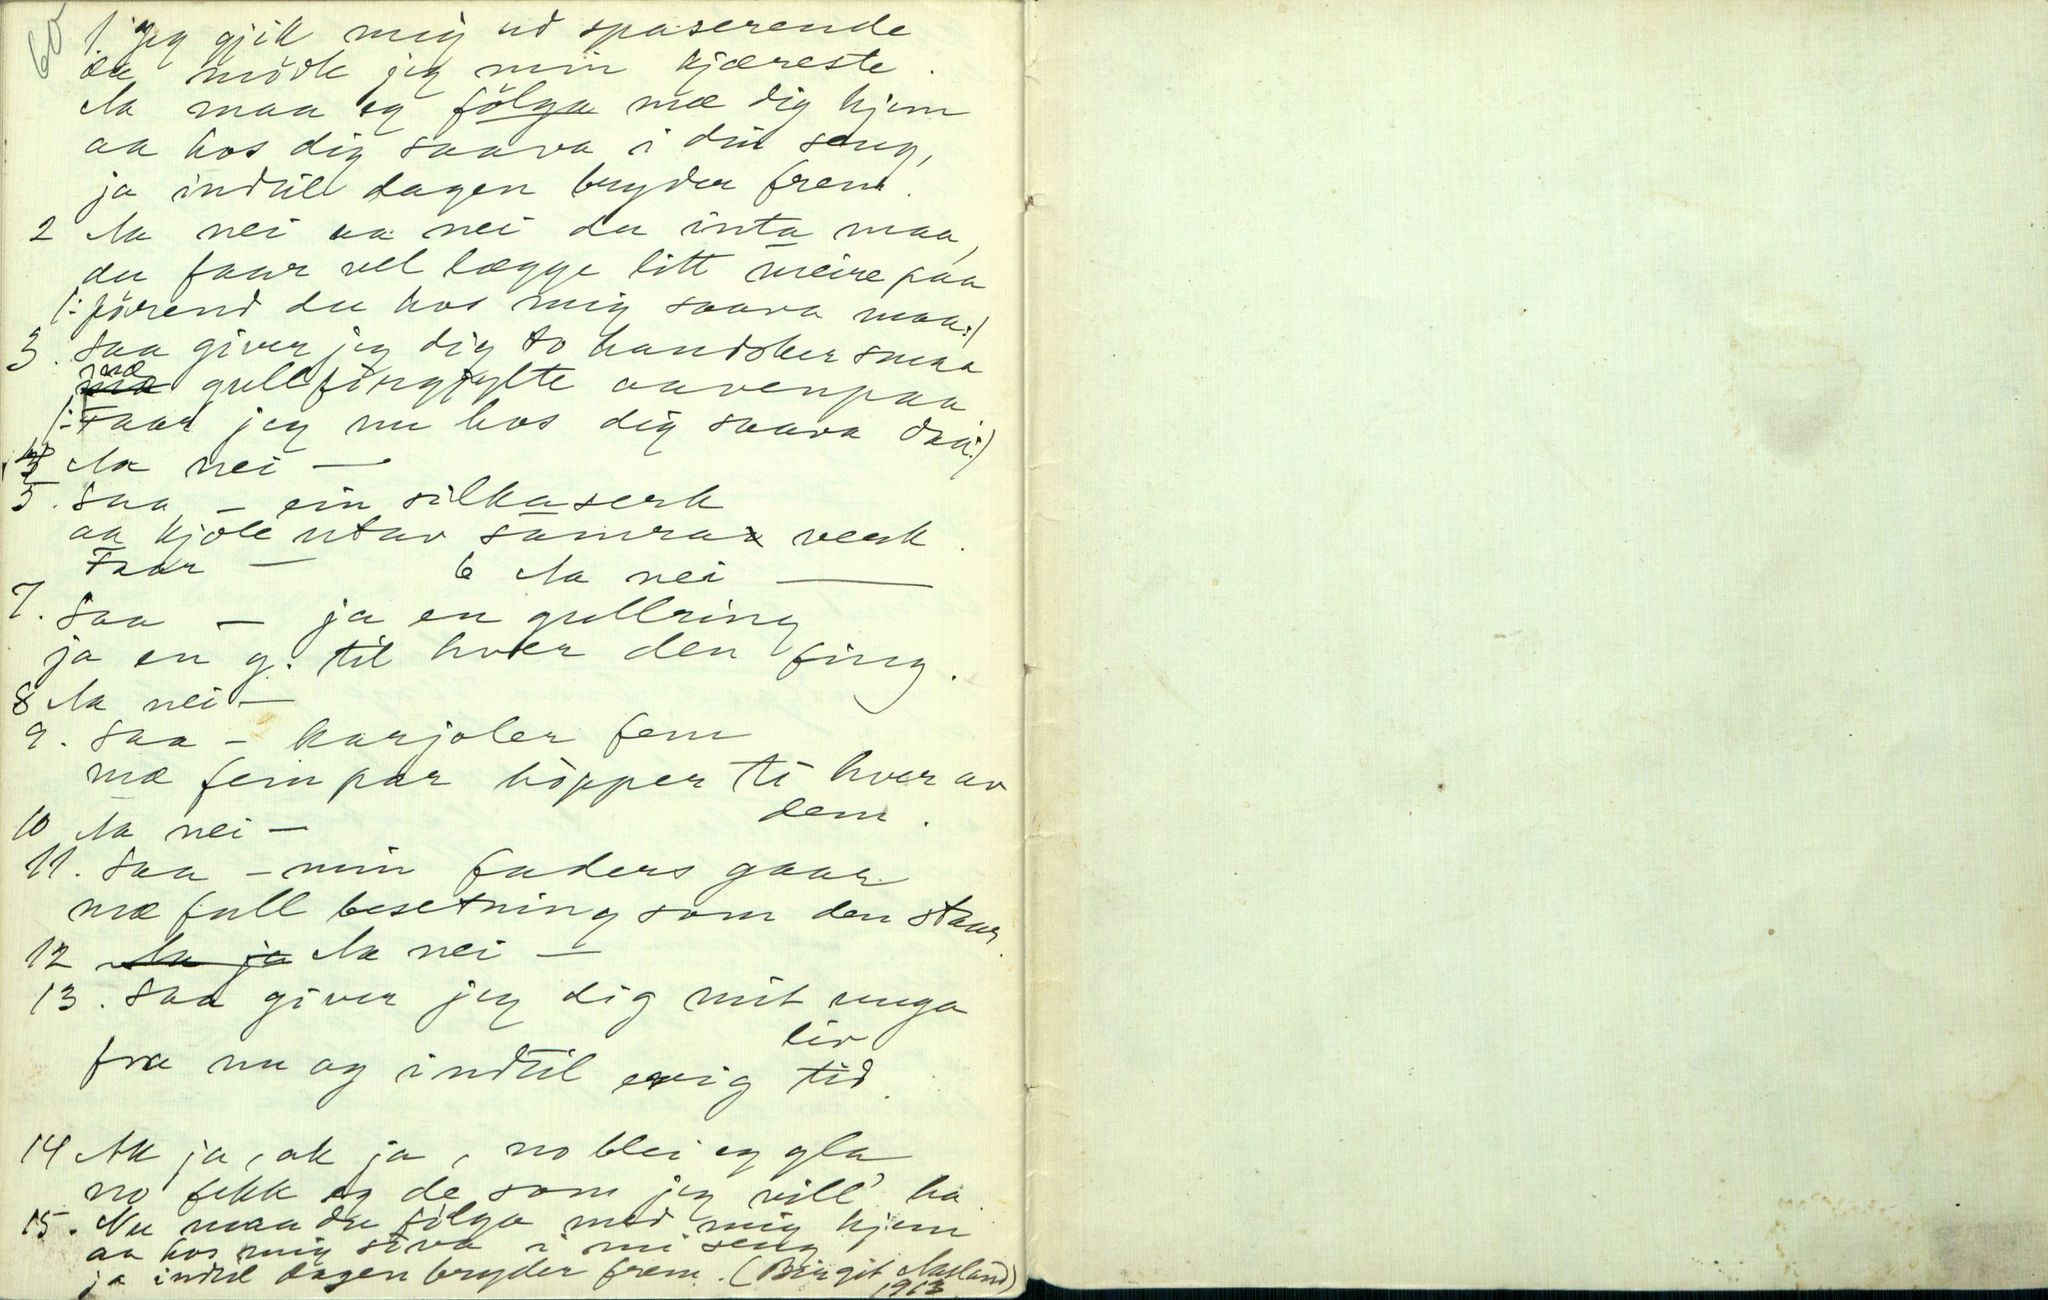 60
1. Jeg gjik mig ud spaserende
da mödte jeg min kjæreste.
Aa maa eg fölga mæ dig hjem
aa hos dig saava i din seng,
ja indtil dagen bryder frem.
2 Aa nei aa nei du inta maa,
du faar vel lægge litt meire paa
/: förend du hos mig saava maa :/
3. Saa giver jeg dig to handsker smaa
mæ gullforgylte aavenpaa
/: Faar jeg nu hos dig saava daa :/
4 Aa nei —
5. Saa – ein silkaserk
aa kjole utav samra verk.
Faar — 6 Aa nei —
7. Saa — ja en gullring
ja en g. til hver den fing.
8 Aa nei —
9. Saa – karjoler fem
mæ fem par höpper ti hver av
dem.
10 Aa nei —
11. Saa – min faders gaar
mæ full besetning som den staar.
12 Aa ja Aa nei —
13. Saa giver jeg dig mit unga
liv
fra nu og indtil evig tid.
14 Ak ja, ak ja, no blei eg gla,
no fekk eg de som jeg vill' ha
15. Nu maa du fölga med mig hjem
aa hos mig söva i mi seng
ja indtil dagen bryder frem. (Birgit Aasland)
1913